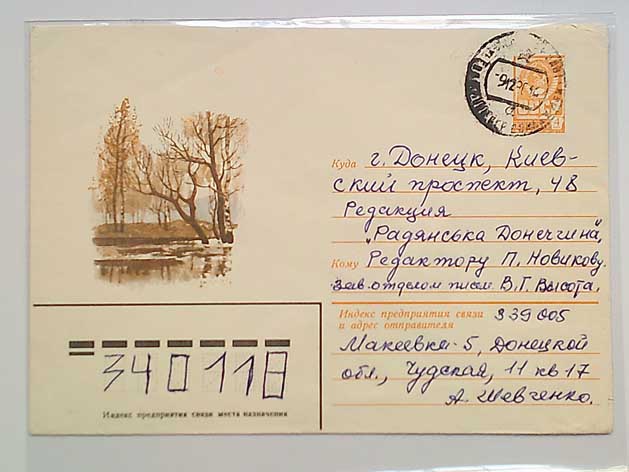 Куда г. Донецк, Киев-
ский проспект, 48
Редакция
„Радянська Донеччина",
Кому Редактору П. Новикову.
зав. отделом писем В. Г. Высота.
Индекс предприятия связи 339005
и адрес отправителя
Макеевка-5, Донецкой
обл., Чудская, 11 кв 17
А. Шевченко.
340118
Индекс предприятия связи места назначения